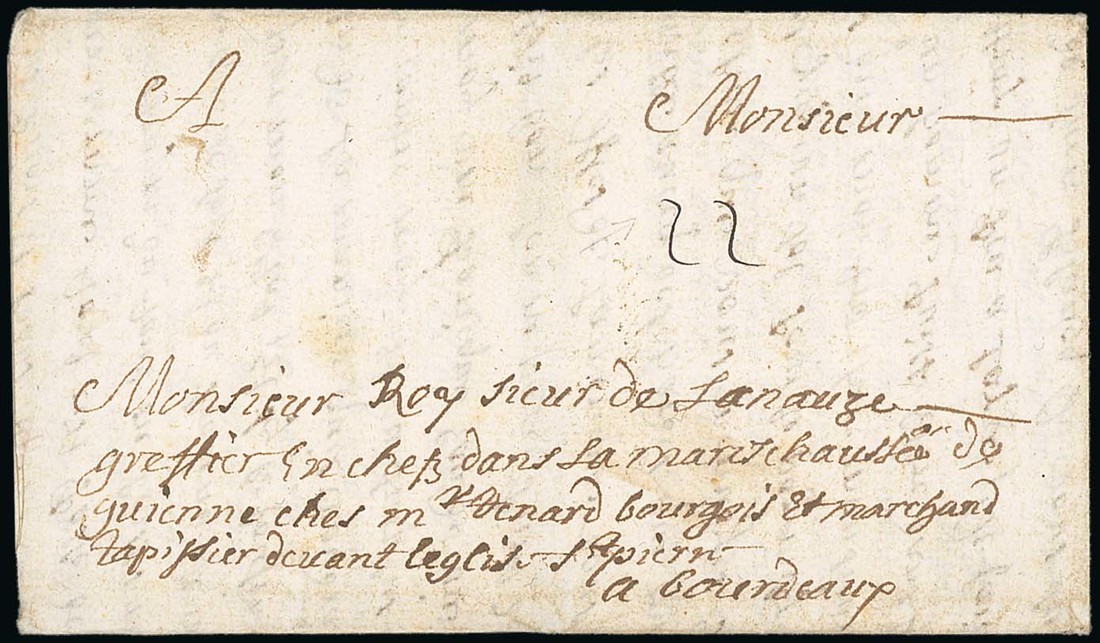 A Monsieur
22
Monsieur Rey sieur de Lanauze
greffier En chef dans La mareschaussée de
guienne ches mr benard bourgois Et marchand
tapissier devant leglise St pierre
a bourdeaux